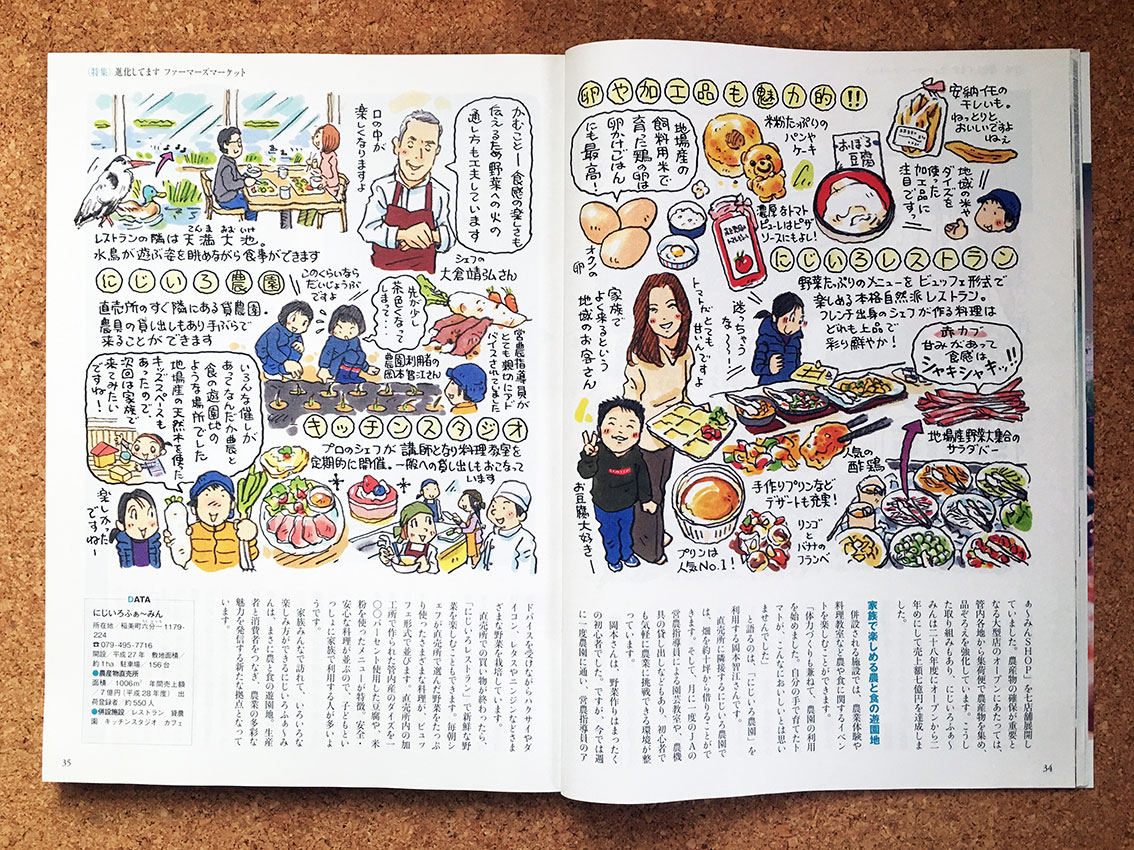 〈特集〉 進化してます ファーマーズマーケット
卵や加工品も魅力的!!
地場産の
飼料用米で
育った鶏の卵は
卵かけごはん
にも最高!
オクノの
卵
米粉たっぷりの
パンや
ケーキ
おぼろ
豆腐
安納イモの
干しいも。
ねっとりと
おいしいですよ
ねぇ
地域の米や
ダイズを
使った
加工品に
注目ですっ
濃厚なトマト
ピューレはピザ
ソースにもよし!
にじいろレストラン
野菜たっぷりのメニューをビュッフェ形式で
楽しめる本格自然派レストラン。
フレンチ出身のシェフが作る料理は
どれも上品で
彩り鮮やか!
家族で
よく来るという
地域のお客さん
トマトがとても
甘いんですよ
迷っちゃう
な〜〜!
赤カブ
甘みがあって
食感は
シャキシャキッ!!
地場産野菜大集合の
サラダバー
人気の
酢鶏
手作りプリンなど
デザートも充実!
お豆腐大好きー
プリンは
人気No.1!
リンゴ
と
バナナの
フランベ
ぁ〜みんSHOP」を七店舗展開し
ていました。農産物の確保が重要と
なる大型店のオープンにあたっては、
管内各地から集荷便で農産物を集め、
品ぞろえを強化しています。こうし
た取り組みもあり、にじいろふぁ〜
みんは二十八年度にオープンから二
年めにして売上額七億円を達成しま
した。
家族で楽しめる農と食の遊園地
併設される施設では、農業体験や
料理教室など農や食に関するイベン
トを楽しむことができます。
「体力づくりも兼ねて、農園の利用
を始めました。自分の手で育てたト
マトが、こんなにおいしいとは思い
ませんでした」
と語るのは、「にじいろ農園」を
利用する岡本智江さんです。
直売所に隣接するにじいろ農園で
は、畑を約十坪から借りることがで
きます。そして、月に一度のJAの
営農指導員による園芸教室や、農機
具の貸し出しなどもあり、初心者で
も気軽に農業に挑戦できる環境が整
っています。
岡本さんは、野菜作りはまったく
の初心者でした。ですが、今では週
に一度農園に通い、営農指導員のア
34
レストランの隣は天満大池。
てんま おおいけ
水鳥が遊ぶ姿を眺めながら食事ができます
口の中が
楽しくなりますよ
かむこと―食感の楽しさも
伝えるため野菜への火の
通し方も工夫しています
シェフの
大倉靖弘さん
にじいろ農園
直売所のすぐ隣にある貸農園。
農具の貸し出しもあり手ぶらで
来ることができます
このくらいなら
だいじょうぶ
ですよ
先が少し
茶色くなって
しまって・・・
農園利用者の
岡本智江さん
営農指導員が
とても親切にアド
バイスされていました
キッチンスタジオ
プロのシェフが講師となり料理教室を
定期的に開催。一般への貸し出しもおこなって
います
いろんな催しが
あってなんだか農と
食の遊園地の
ような場所でした
地場産の天然木を使った
キッズスペースも
あったので、
次回は家族で
来てみたい
ですね!
楽しかった
ですねー
ドバイスを受けながらハクサイやダ
イコン、レタスやニンジンなどさま
ざまな野菜を栽培しています。
直売所での買い物が終わったら、
「にじいろレストラン」で新鮮な野
菜を楽しむこともできます。毎朝シ
ェフが直売所で選んだ野菜をたっぷ
り使ったさまざまな料理が、ビュッ
フェ形式で並びます。直売所内の加
工所で作られた管内産のダイズを一
〇〇パーセント使用した豆腐や、米
粉を使ったメニューが特徴。安全・
安心な料理が並ぶので、子どもとい
っしょに家族で利用する人が多いよ
うです。
家族みんなで訪れて、いろいろな
楽しみ方ができるにじいろふぁ〜み
んは、まさに農と食の遊園地。生産
者と消費者をつなぎ、農業の多彩な
魅力を発信する新たな拠点となって
います。
DATA
にじいろふぁ〜みん
所在地／稲美町六分一1179-
224
☎079-495-7716
開設／平成27年 敷地面積／
約1ha 駐車場／156台
●農産物直売所
面積／1006m² 年間売上額
／7億円(平成28年度) 出
荷登録者／約550人
●併設施設／レストラン 貸農
園 キッチンスタジオ カフェ
35